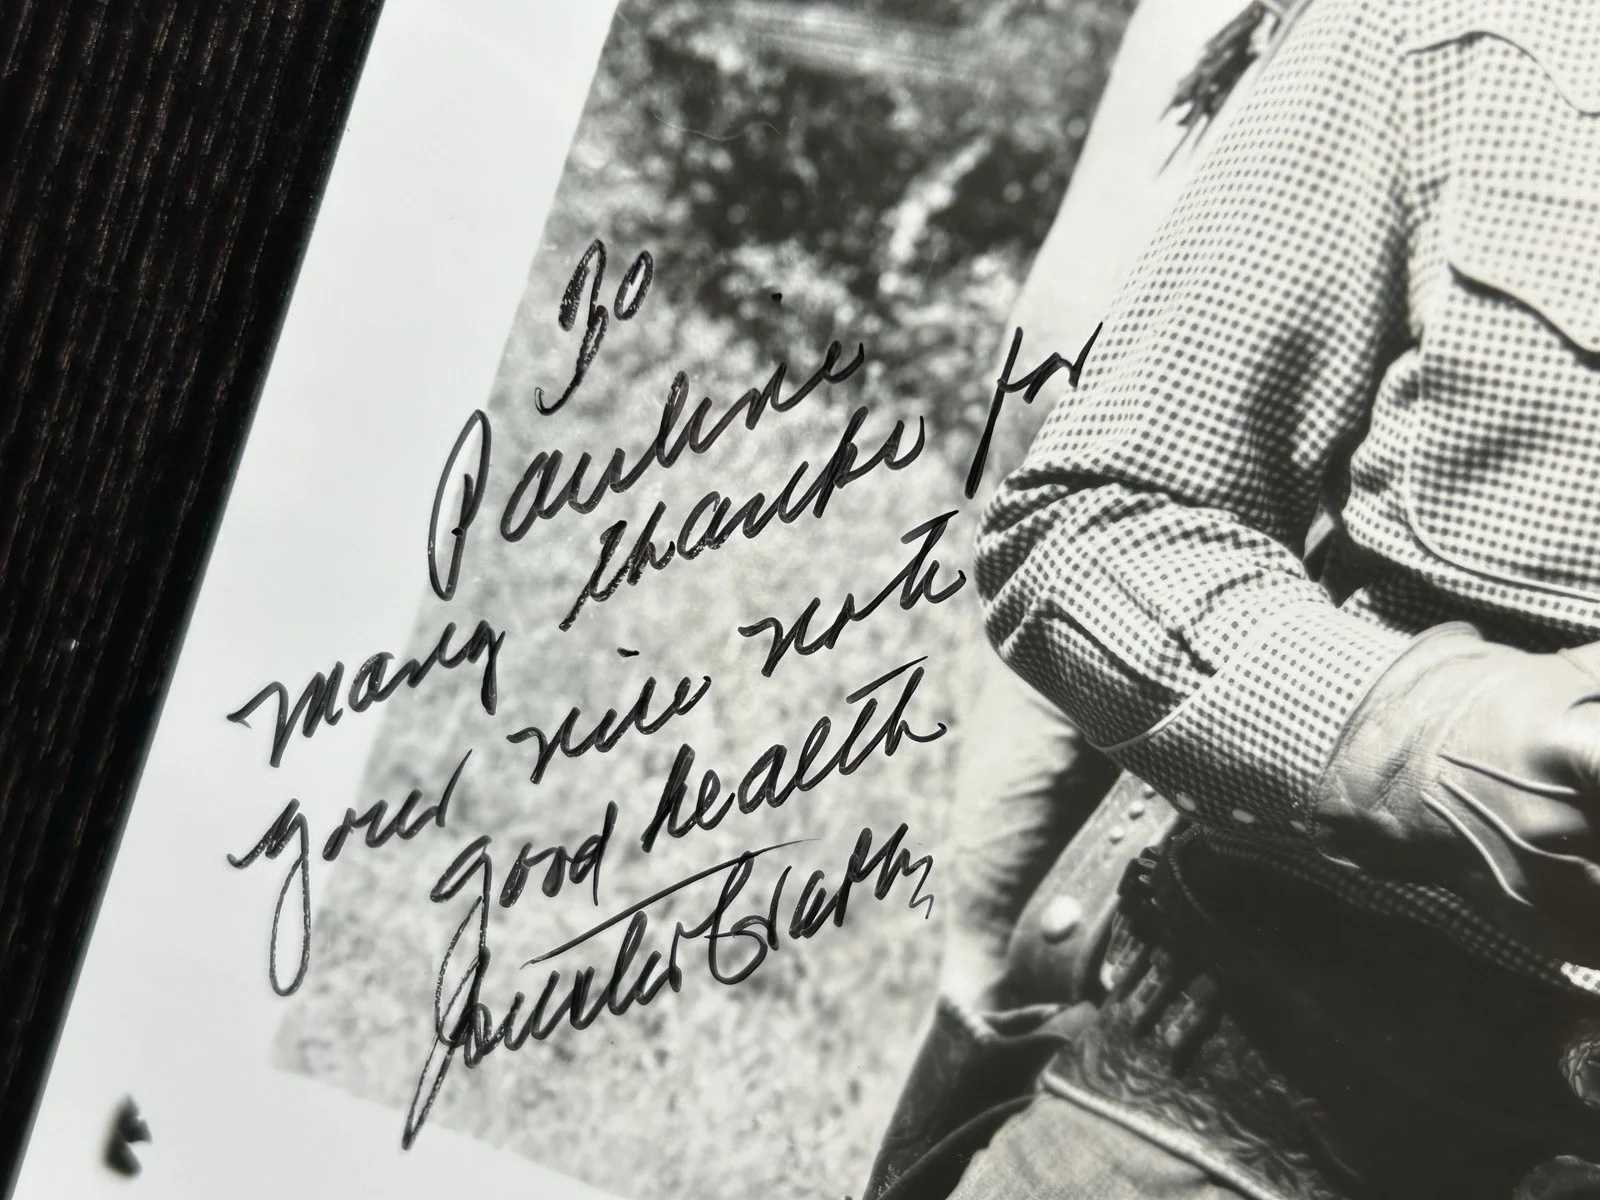 To
Pauline
many thanks for
your nice note
good health
Buster Crabbe